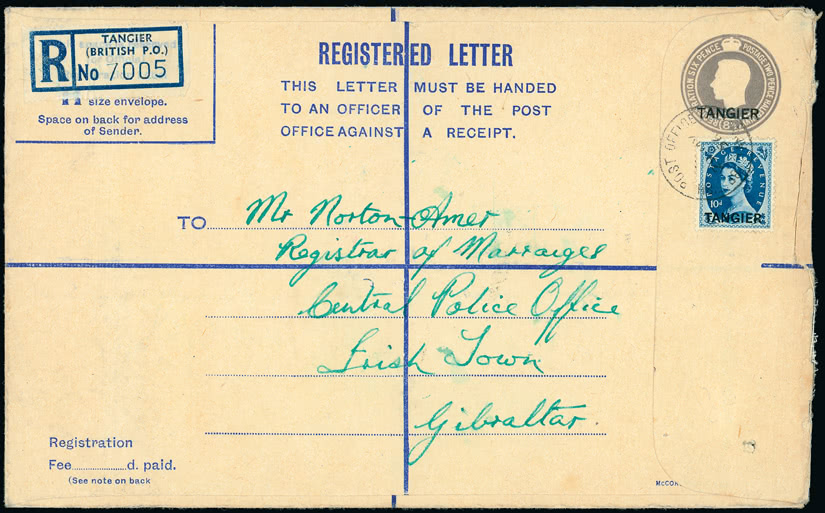 TANGIER
(BRITISH P.O.)
R No 7005
size envelope.
Space on back for address
of Sender.
REGISTERED LETTER
THIS LETTER MUST BE HANDED
TO AN OFFICER OF THE POST
OFFICE AGAINST A RECEIPT.
POSTAGE TWO PENCE
TANGIER
POST OFFICE
POSTAGE REVENUE
10d
TANGIER
TO Mr Norton-Amer
Registrar of Marraiges
Central Police Office
Irish Town
Gibraltar.
Registration
Fee d. paid.
(See note on back
McCOR